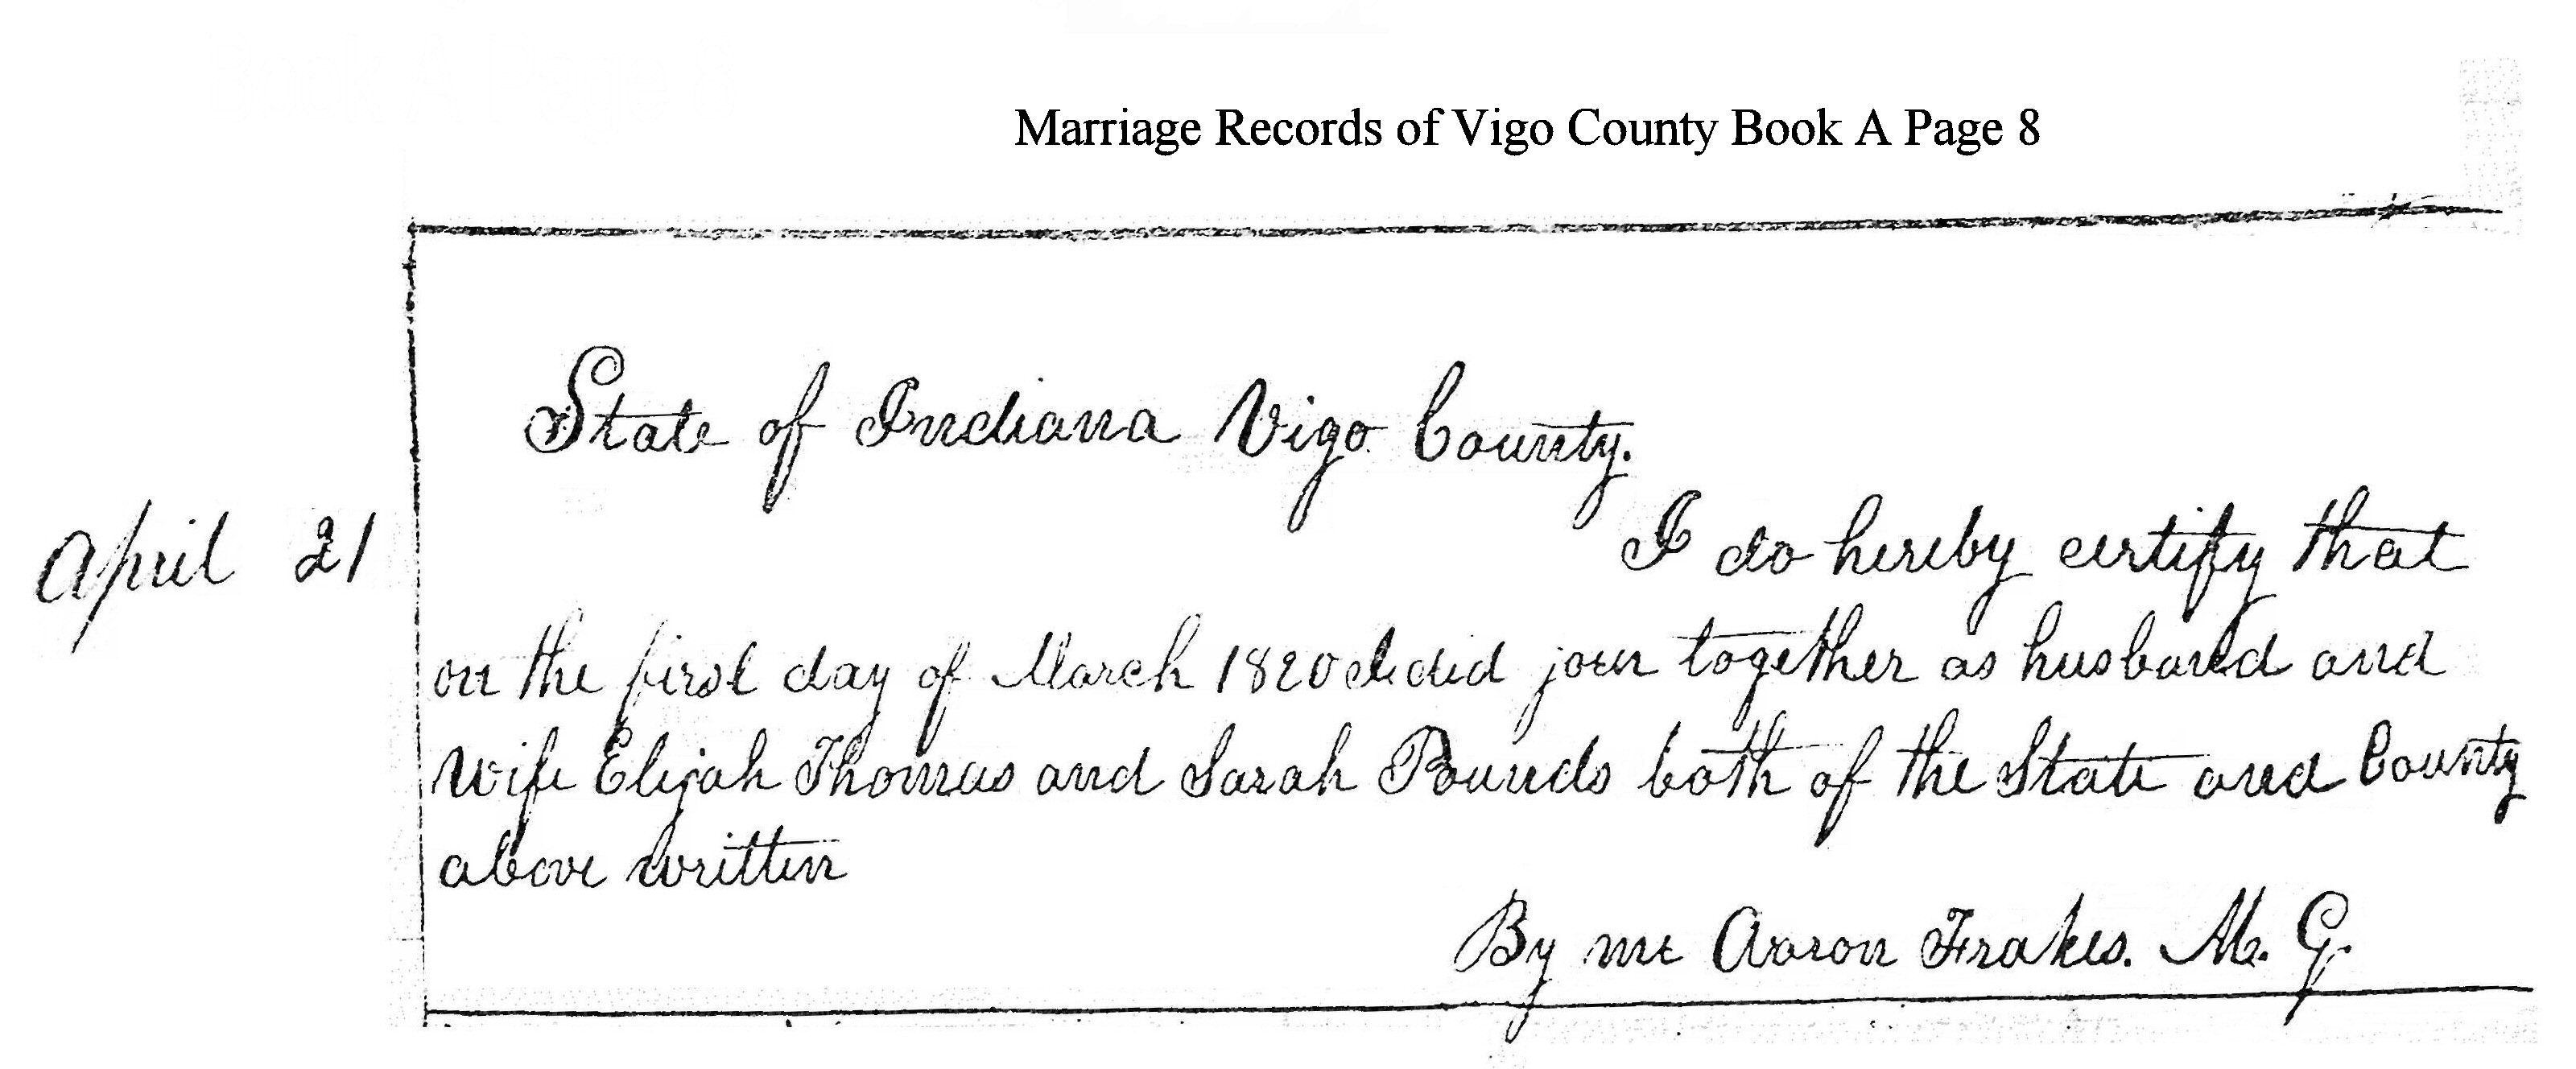 Marriage Records of Vigo County Book A Page 8
State of Indiana Vigo County.
April 21
I do hereby certify that
on the first day of March 1820 I did join together as husband and
wife Elijah Thomas and Sarah Pounds both of the State and County
above written
By me Aaron Frakes. M. G.